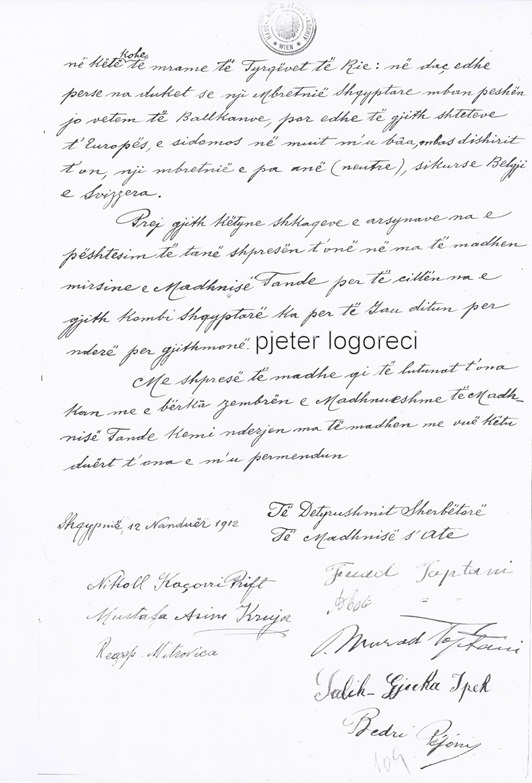 WIEN
në këtë kohe të mrame të Tyrqëvet të Rie: në daç edhe
perse na duket se nji Mbretnië Shqyptare mban peshën
jo vetem të Ballkanve, por edhe të gjith shteteve
t'Europës, e sidomos në muit m'u bâa, mbas dishirit
t'on, nji mbretnië e pa anë (neutre), sikurse Belgji
e Svizzera.
Prej gjith këtyne shkaqeve e arsynave na e
pështesim të tanë shpresën t'onë në ma të madhen
mirsine e Madhnisë Tande per të cillën na e
gjith Kombi Shqyptarë ka per të Jau ditun per
nderë per gjithmonë.
pjeter logoreci
Me shpresë të madhe qi të lutunat t'ona
kan me e bërkâ zembrën e Madhnueshme të Madh-
nisë Tande kemi nderjen ma të madhen me vuë këtu
duërt t'ona e m'u permendun
Shqypnië, 12 Nanduër 1912
Të Detyrushmit Sherbëtorë
Të Madhnisë s'Ate
Nikoll Kaçorri Prift
Mustafa Asim Kruja
Reqep Mitrovica
Fuad Toptani
Abdi " "
Murad Toptani
Salih Gjuka Ipek
Bedri Pejani
104